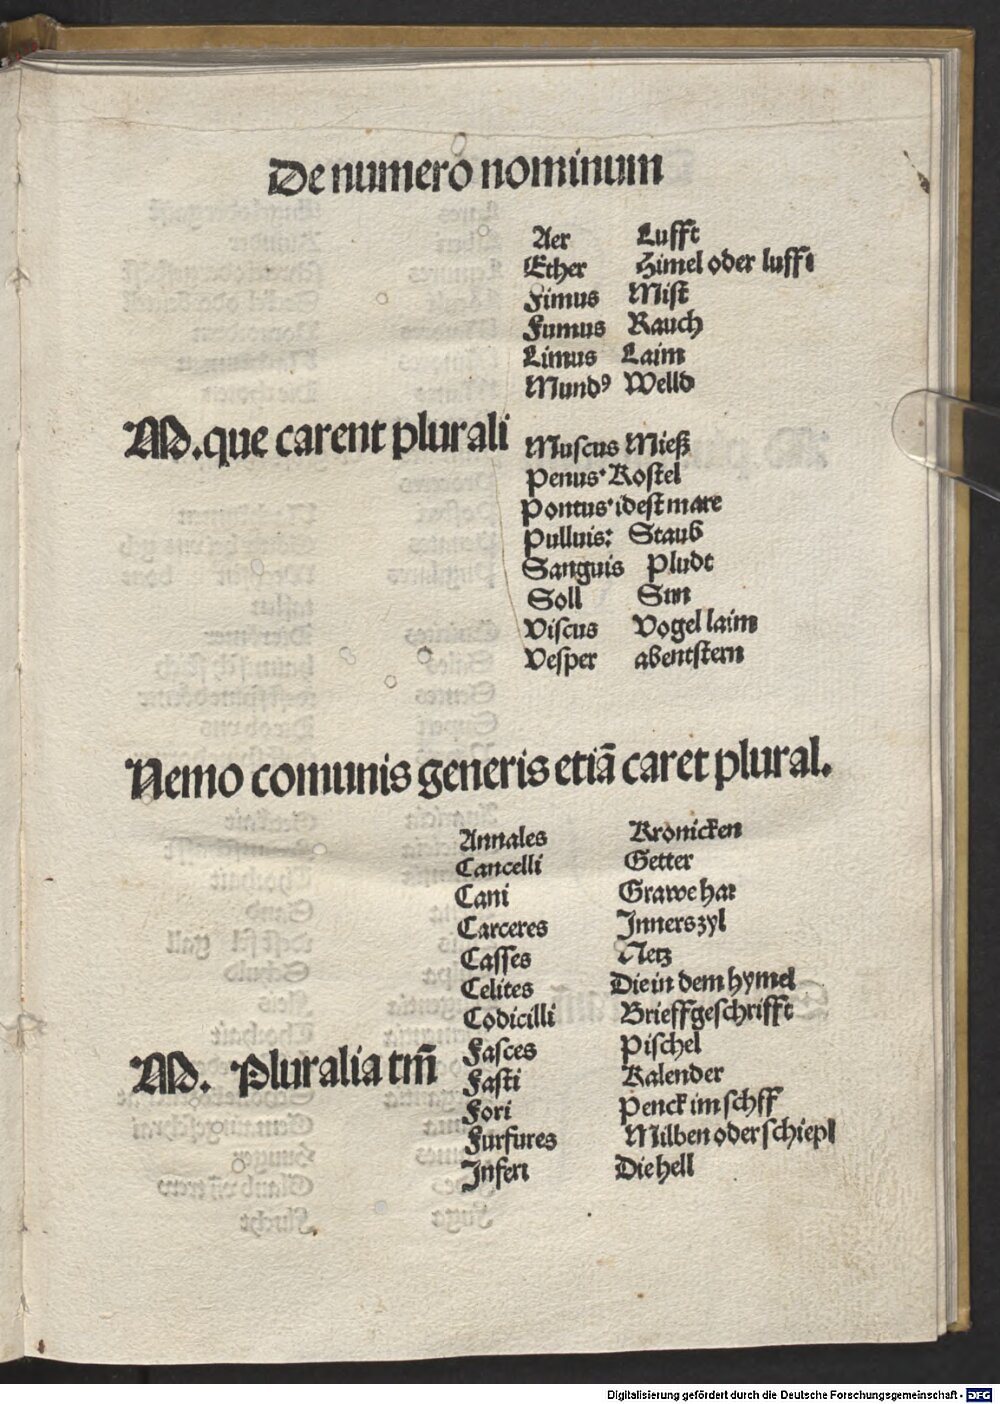 De numero nominum
Aer Lufft
Ether Himel oder lufft
Fimus Mist
Fumus Rauch
Limus Laim
Mundꝰ Welld
M. que carent plurali
Muscus Mieß
Penus· Kostel
Pontus· idest mare
Pulluis: Staub
Sanguis Pludt
Soll Sun
Viscus Vogel laim
Vesper abentstern
Nemo comunis generis etiā caret plural.
Annales Kronicken
Cancelli Getter
Cani Grawe har
Carceres Innerszyl
Casses Netz
Celites Die in dem hymel
Codicilli Brieffgeschrifft
M. Pluralia tm̄
Fasces Pischel
Fasti Kalender
Fori Penck im schff
Furfures Milben oder schiepl
Inferi Die hell
Digitalisierung gefördert durch die Deutsche Forschungsgemeinschaft - DFG